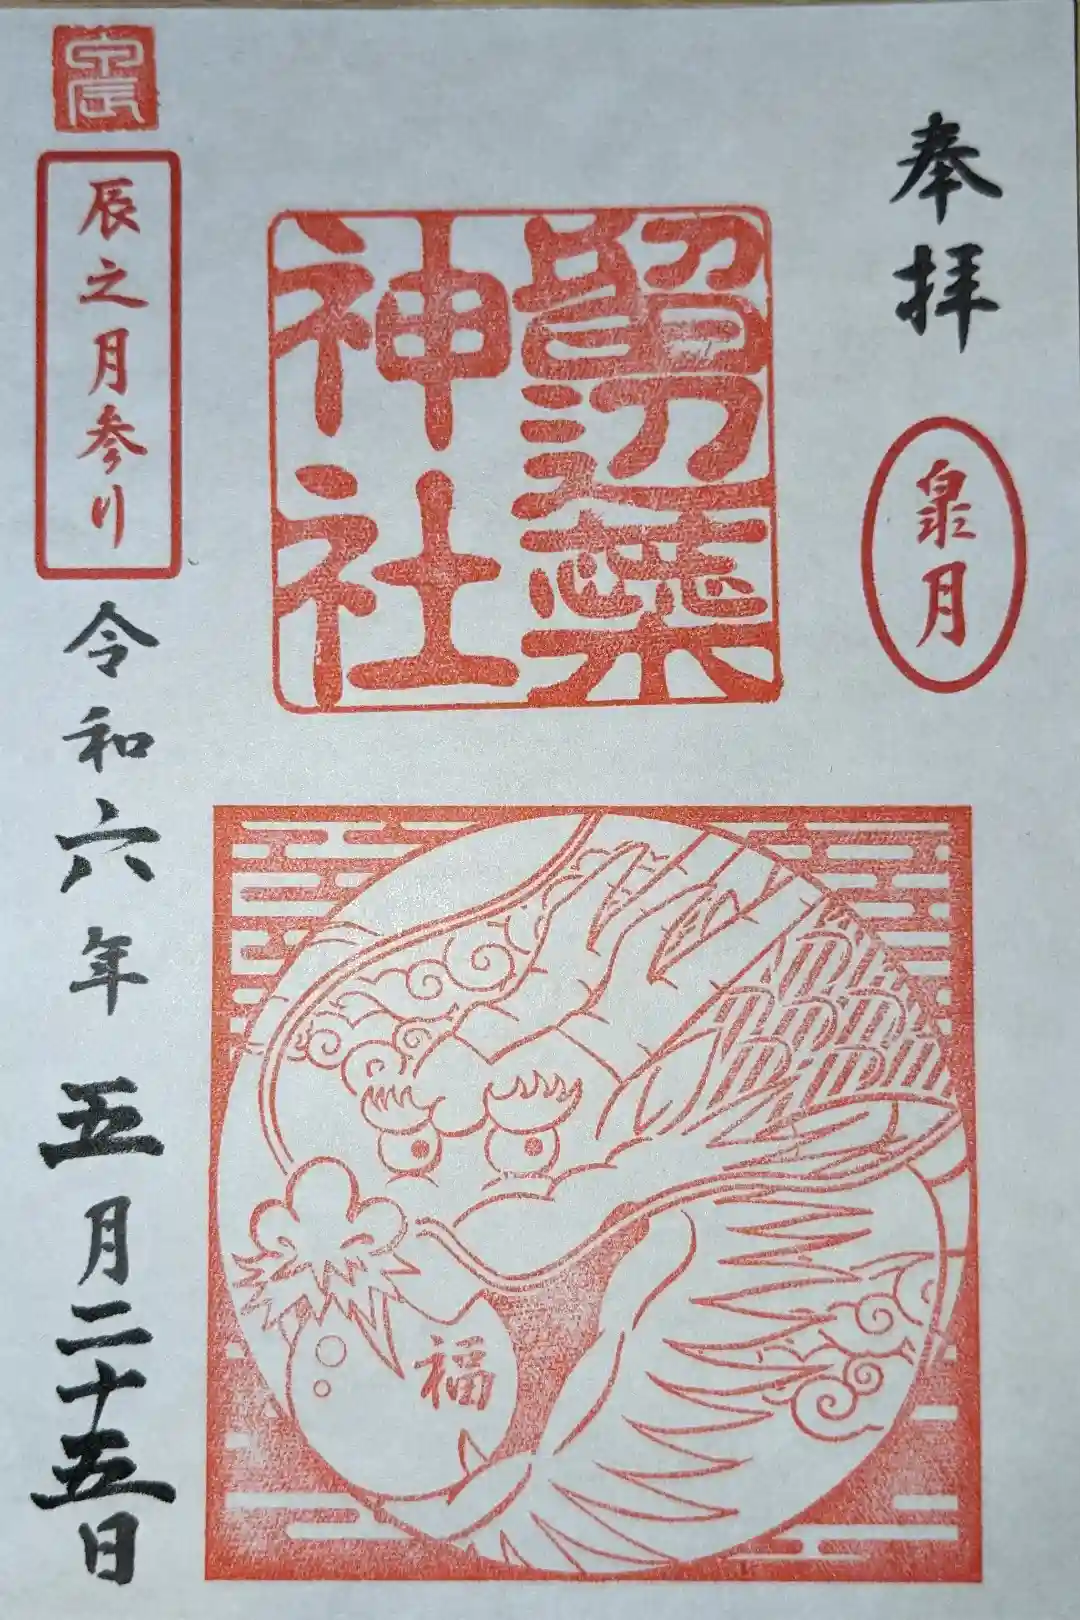 奉拝
皐月
留辺蘂
神社
福
辰之月参り
令和六年五月二十五日